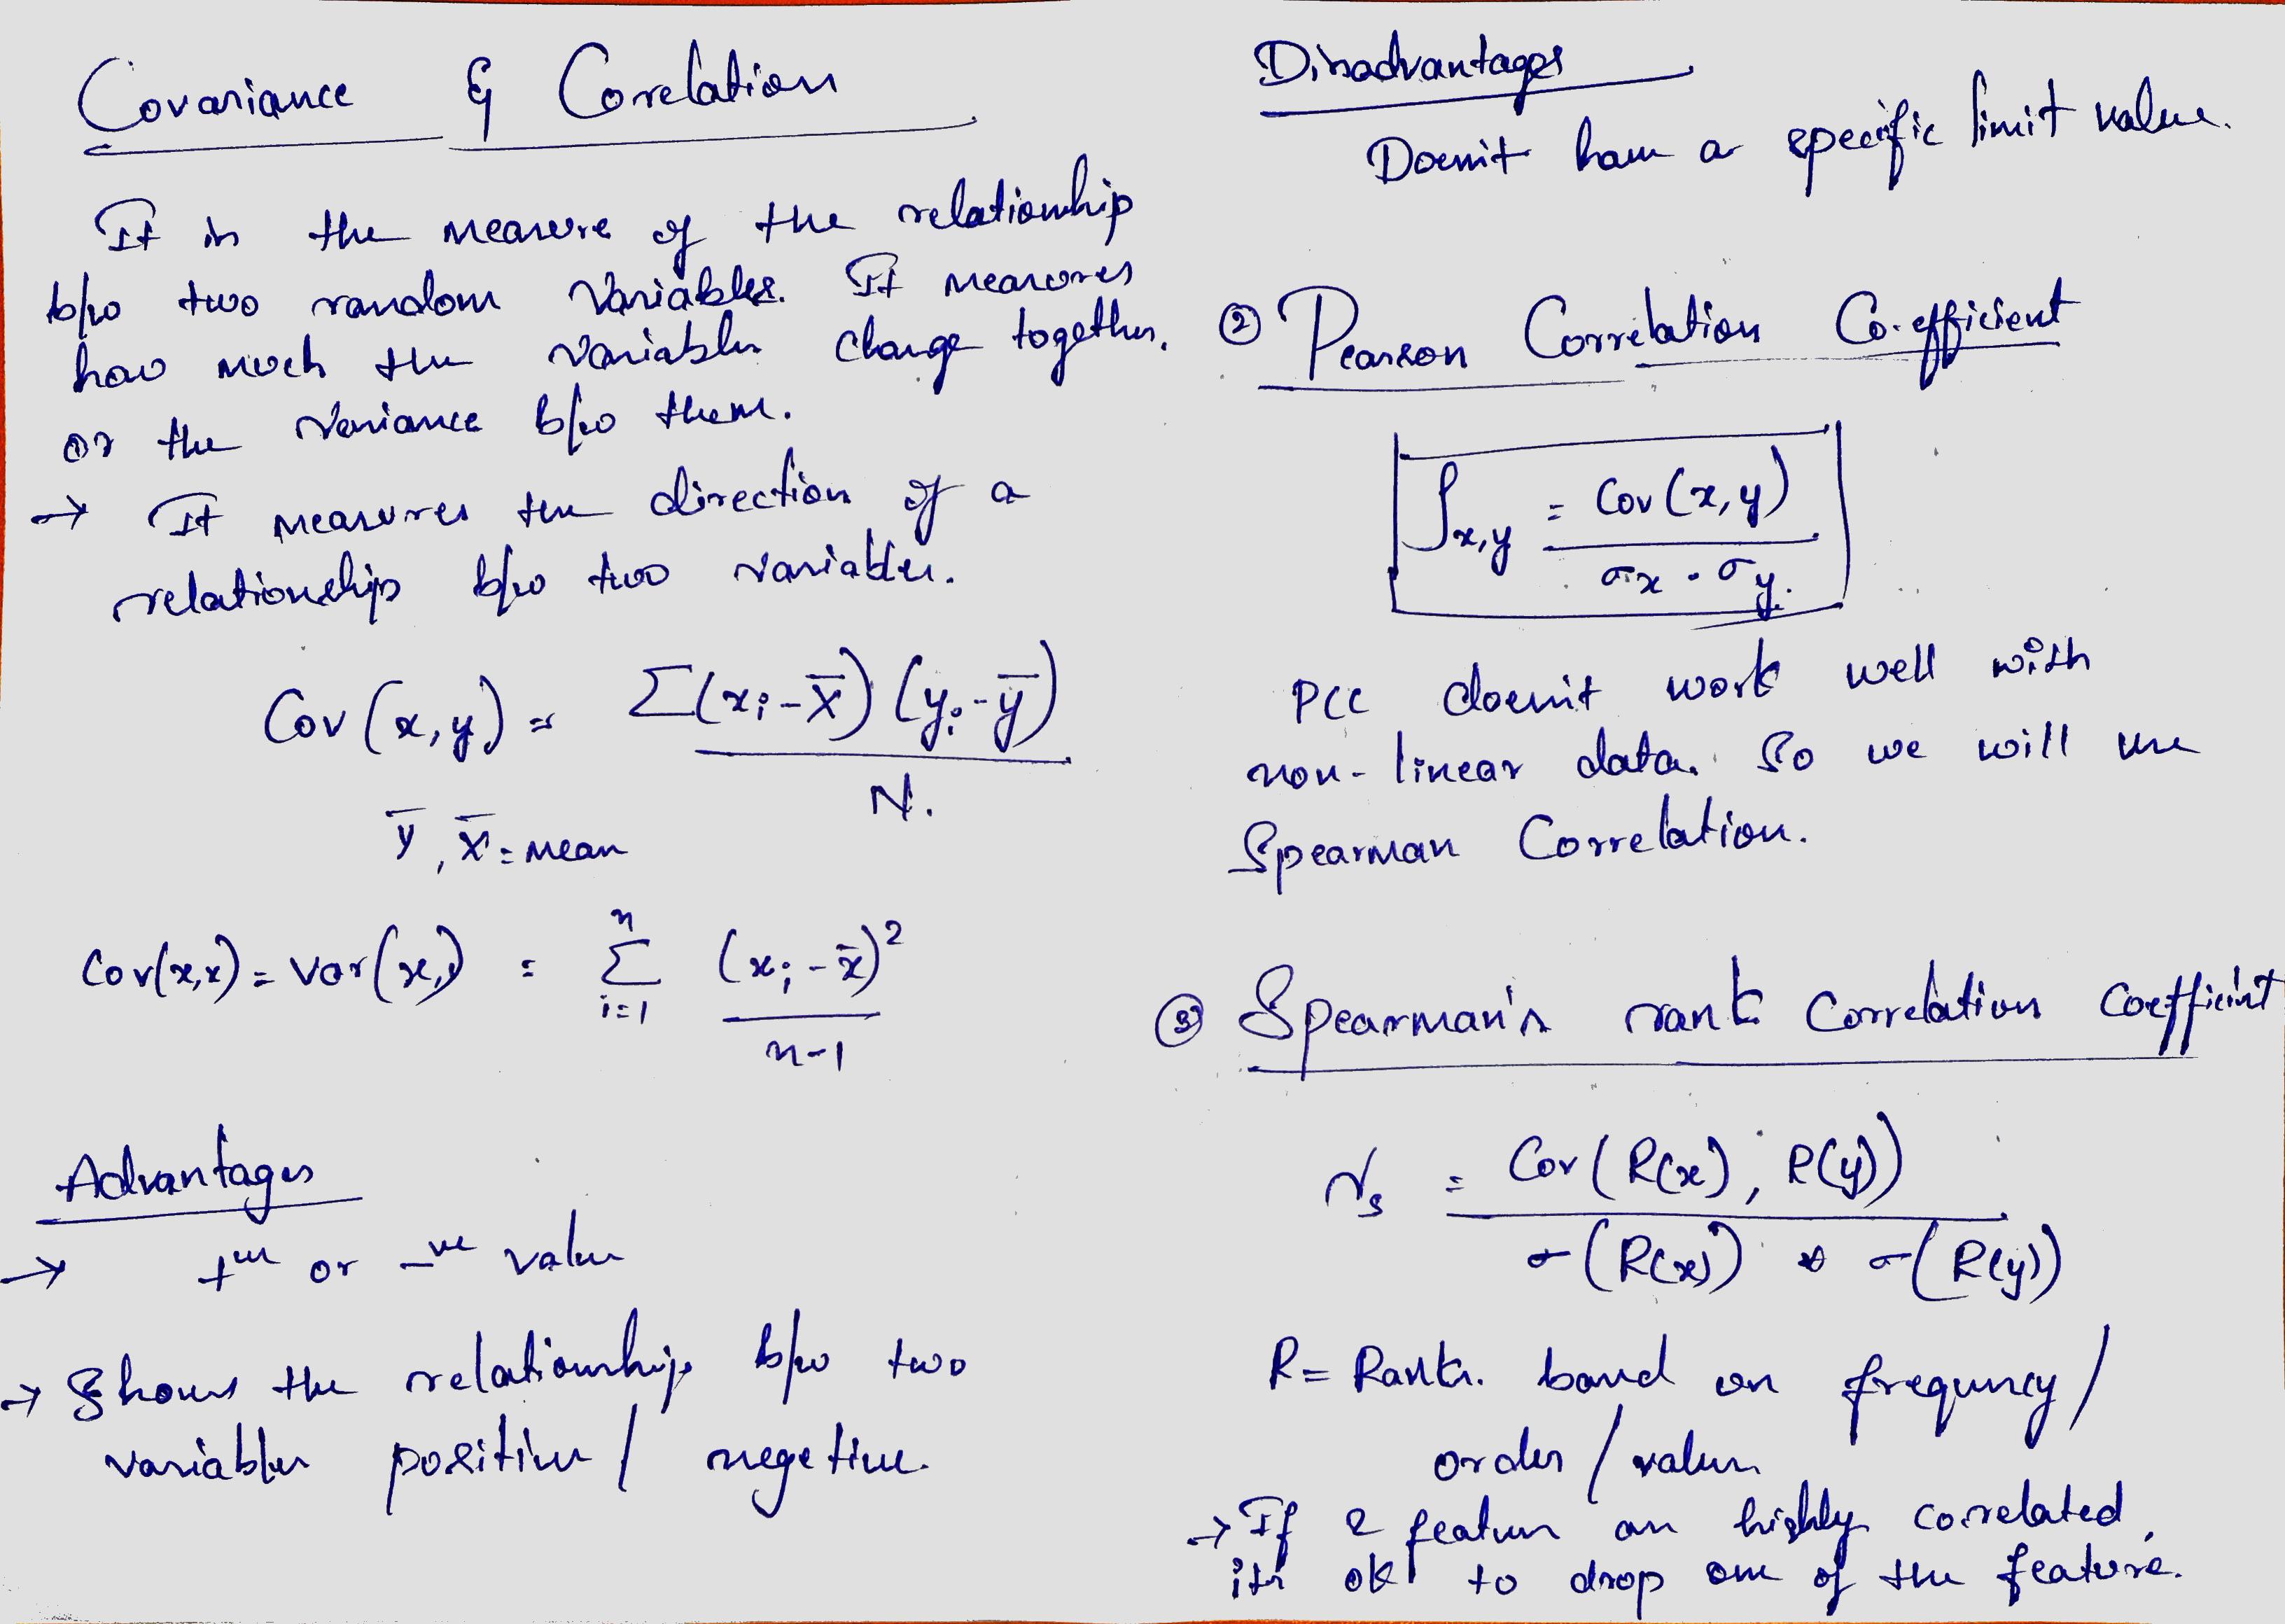 Covariance & Correlation
It is the measure of the relationship
b/w two random variables. It measures
how much the variables change together.
or the variance b/w them.
→ It measures the direction of a
relationship b/w two variables.
Cov(x,y) = Σ(xi - x̄)(yi - ȳ) / N.
ȳ, x̄ = mean
Cov(x,x) = Var(x) = Σ i=1 n (xi - x̄)² / n-1
Advantages
→ +ve or -ve value
→ Shows the relationship b/w two
variables positive / negetive.
Disadvantages
Doesn't have a specific limit value.
② Pearson Correlation Co-efficient
ρx,y = Cov(x,y) / σx · σy.
PCC doesn't work well with
non-linear data. So we will use
Spearman Correlation.
③ Spearman's rank Correlation Coefficient
rs = Cov(R(x), R(y)) / σ(R(x)) * σ(R(y))
R = Ranks. based on frequency /
order / values
→ If 2 feature are highly correlated,
its ok to drop one of the feature.